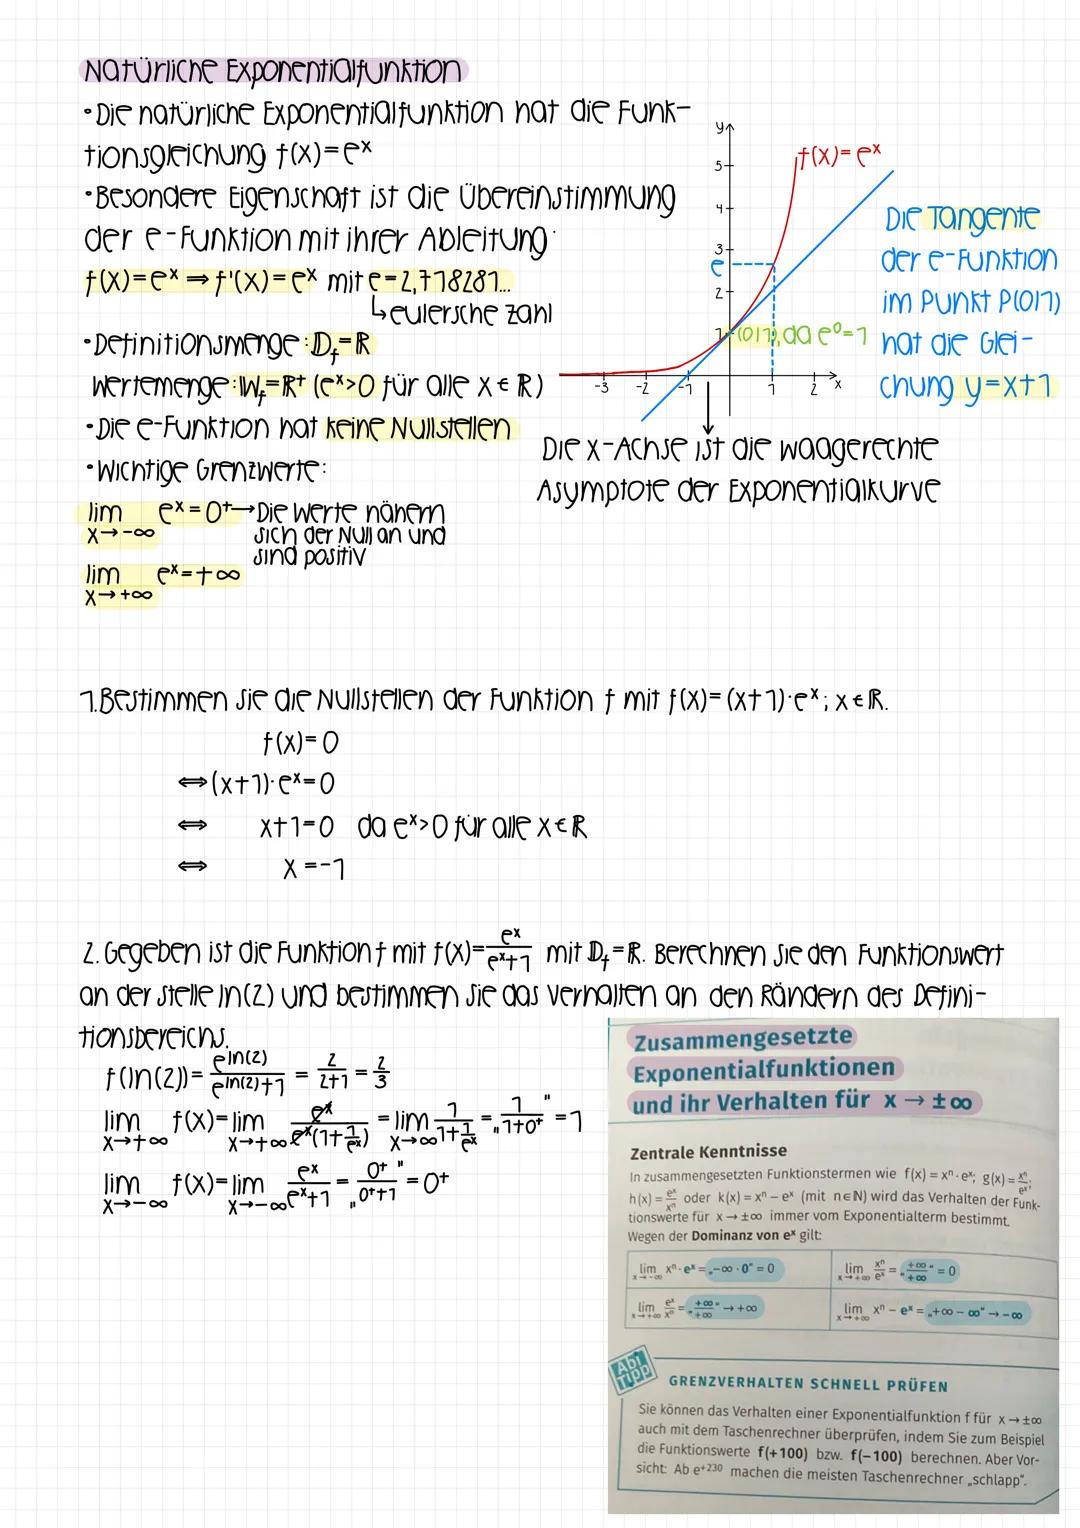 Natürliche Exponentialfunktion
• Die natürliche Exponentialfunktion hat die Funk-
tionsgleichung f(x)=eˣ
• Besondere Eigenschaft ist die Übereinstimmung
der e-Funktion mit ihrer Ableitung
f(x)=eˣ ⇒ f'(x)=eˣ mit e=2,718281...
↳ eulersche Zahl
• Definitionsmenge: D_f=ℝ
Wertemenge: W_f=ℝ⁺ (eˣ>0 für alle x∈ℝ)
• Die e-Funktion hat keine Nullstellen
• Wichtige Grenzwerte:
lim eˣ=0⁺ → Die Werte nähern
x→-∞ sich der Null an und
sind positiv
lim eˣ=+∞
x→+∞
y
5
4
3
e
2
1
-3 -2 -1 1 2 x
f(x)=eˣ
(0|1), da e⁰=1
Die Tangente
der e-Funktion
im Punkt P(0|1)
hat die Glei-
chung y=x+1
Die x-Achse ist die waagerechte
Asymptote der Exponentialkurve
1. Bestimmen Sie die Nullstellen der Funktion f mit f(x)=(x+1)·eˣ; x∈ℝ.
f(x)=0
⇔ (x+1)·eˣ=0
⇔ x+1=0 da eˣ>0 für alle x∈ℝ
⇔ x=-1
2. Gegeben ist die Funktion f mit f(x)=eˣ/(eˣ+1) mit D_f=ℝ. Berechnen Sie den Funktionswert
an der Stelle ln(2) und bestimmen Sie das Verhalten an den Rändern des Defini-
tionsbereichs.
f(ln(2))=e^ln(2)/(e^ln(2)+1) = 2/(2+1) = 2/3
lim x→+∞ f(x)=lim x→+∞ eˣ/(eˣ(1+1/eˣ)) =lim x→∞ 1/(1+1/eˣ) = „1/(1+0⁺)" =1
lim x→-∞ f(x)=lim x→-∞ eˣ/(eˣ+1) = „0⁺/(0⁺+1)" =0⁺
Zusammengesetzte
Exponentialfunktionen
und ihr Verhalten für x → ±∞
Zentrale Kenntnisse
In zusammengesetzten Funktionstermen wie f(x) = xⁿ · eˣ; g(x) = xⁿ/eˣ;
h(x) = eˣ/xⁿ oder k(x) = xⁿ − eˣ (mit n∈ℕ) wird das Verhalten der Funk-
tionswerte für x → ±∞ immer vom Exponentialterm bestimmt.
Wegen der Dominanz von eˣ gilt:
lim x→-∞ xⁿ · eˣ = „−∞ · 0" = 0
lim x→+∞ xⁿ/eˣ = „+∞/+∞" = 0
lim x→+∞ eˣ/xⁿ = „+∞/+∞" → +∞
lim x→+∞ xⁿ − eˣ = „+∞ − ∞" → −∞
Abi
Tipp
GRENZVERHALTEN SCHNELL PRÜFEN
Sie können das Verhalten einer Exponentialfunktion f für x → ±∞
auch mit dem Taschenrechner überprüfen, indem Sie zum Beispiel
die Funktionswerte f(+100) bzw. f(−100) berechnen. Aber Vor-
sicht: Ab e⁺²³⁰ machen die meisten Taschenrechner „schlapp".